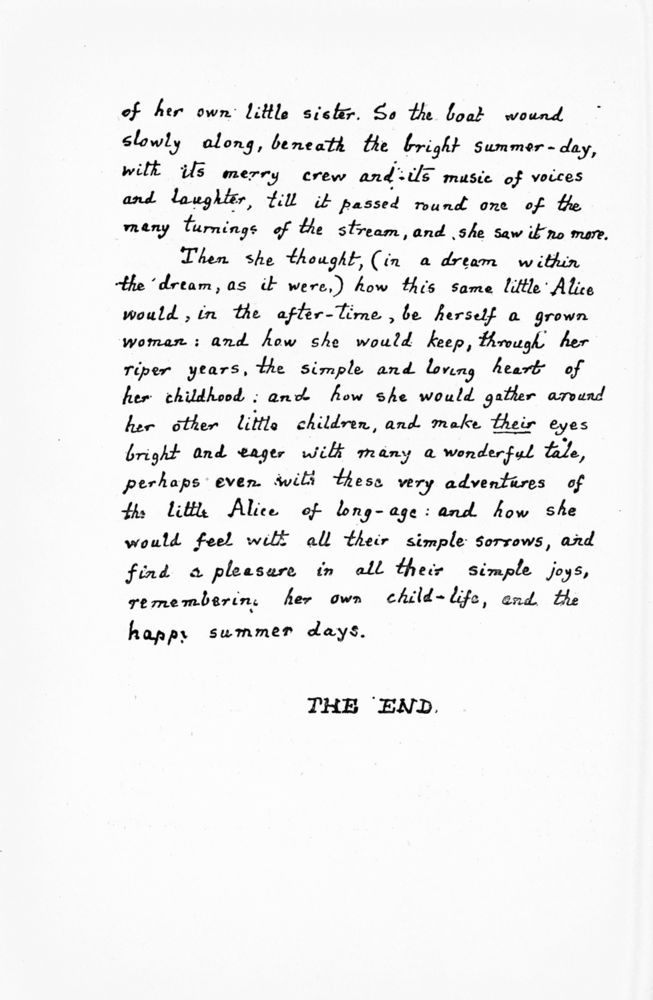 of her own little sister. So the boat wound
slowly along, beneath the bright summer-day,
with its merry crew and its music of voices
and laughter, till it passed round one of the
many turnings of the stream, and she saw it no more.
Then she thought, (in a dream within
the dream, as it were,) how this same little Alice
would, in the after-time, be herself a grown
woman: and how she would keep, through her
riper years, the simple and loving heart of
her childhood: and how she would gather around
her other little children, and make their eyes
bright and eager with many a wonderful tale,
perhaps even with these very adventures of
the little Alice of long-ago: and how she
would feel with all their simple sorrows, and
find a pleasure in all their simple joys,
remembering her own child-life, and the
happy summer days.
THE END.